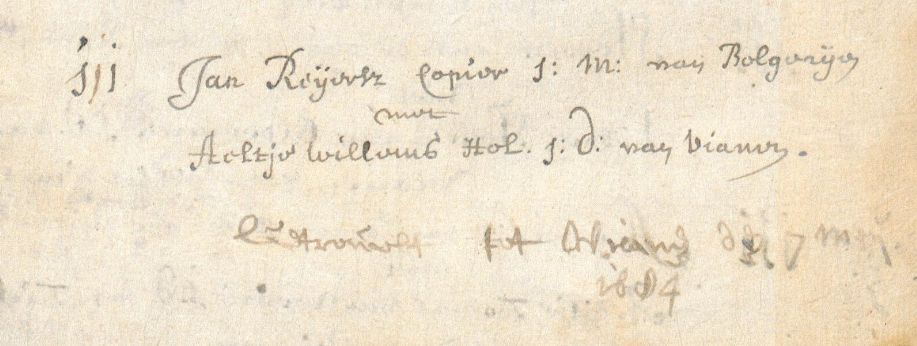 Jan Reyersz Copier J: M: van Bolgarijen
met
Aeltje Willems Hol. J: D: van Vianen.
Getrouwt tot Viane den 7 Maij
1684